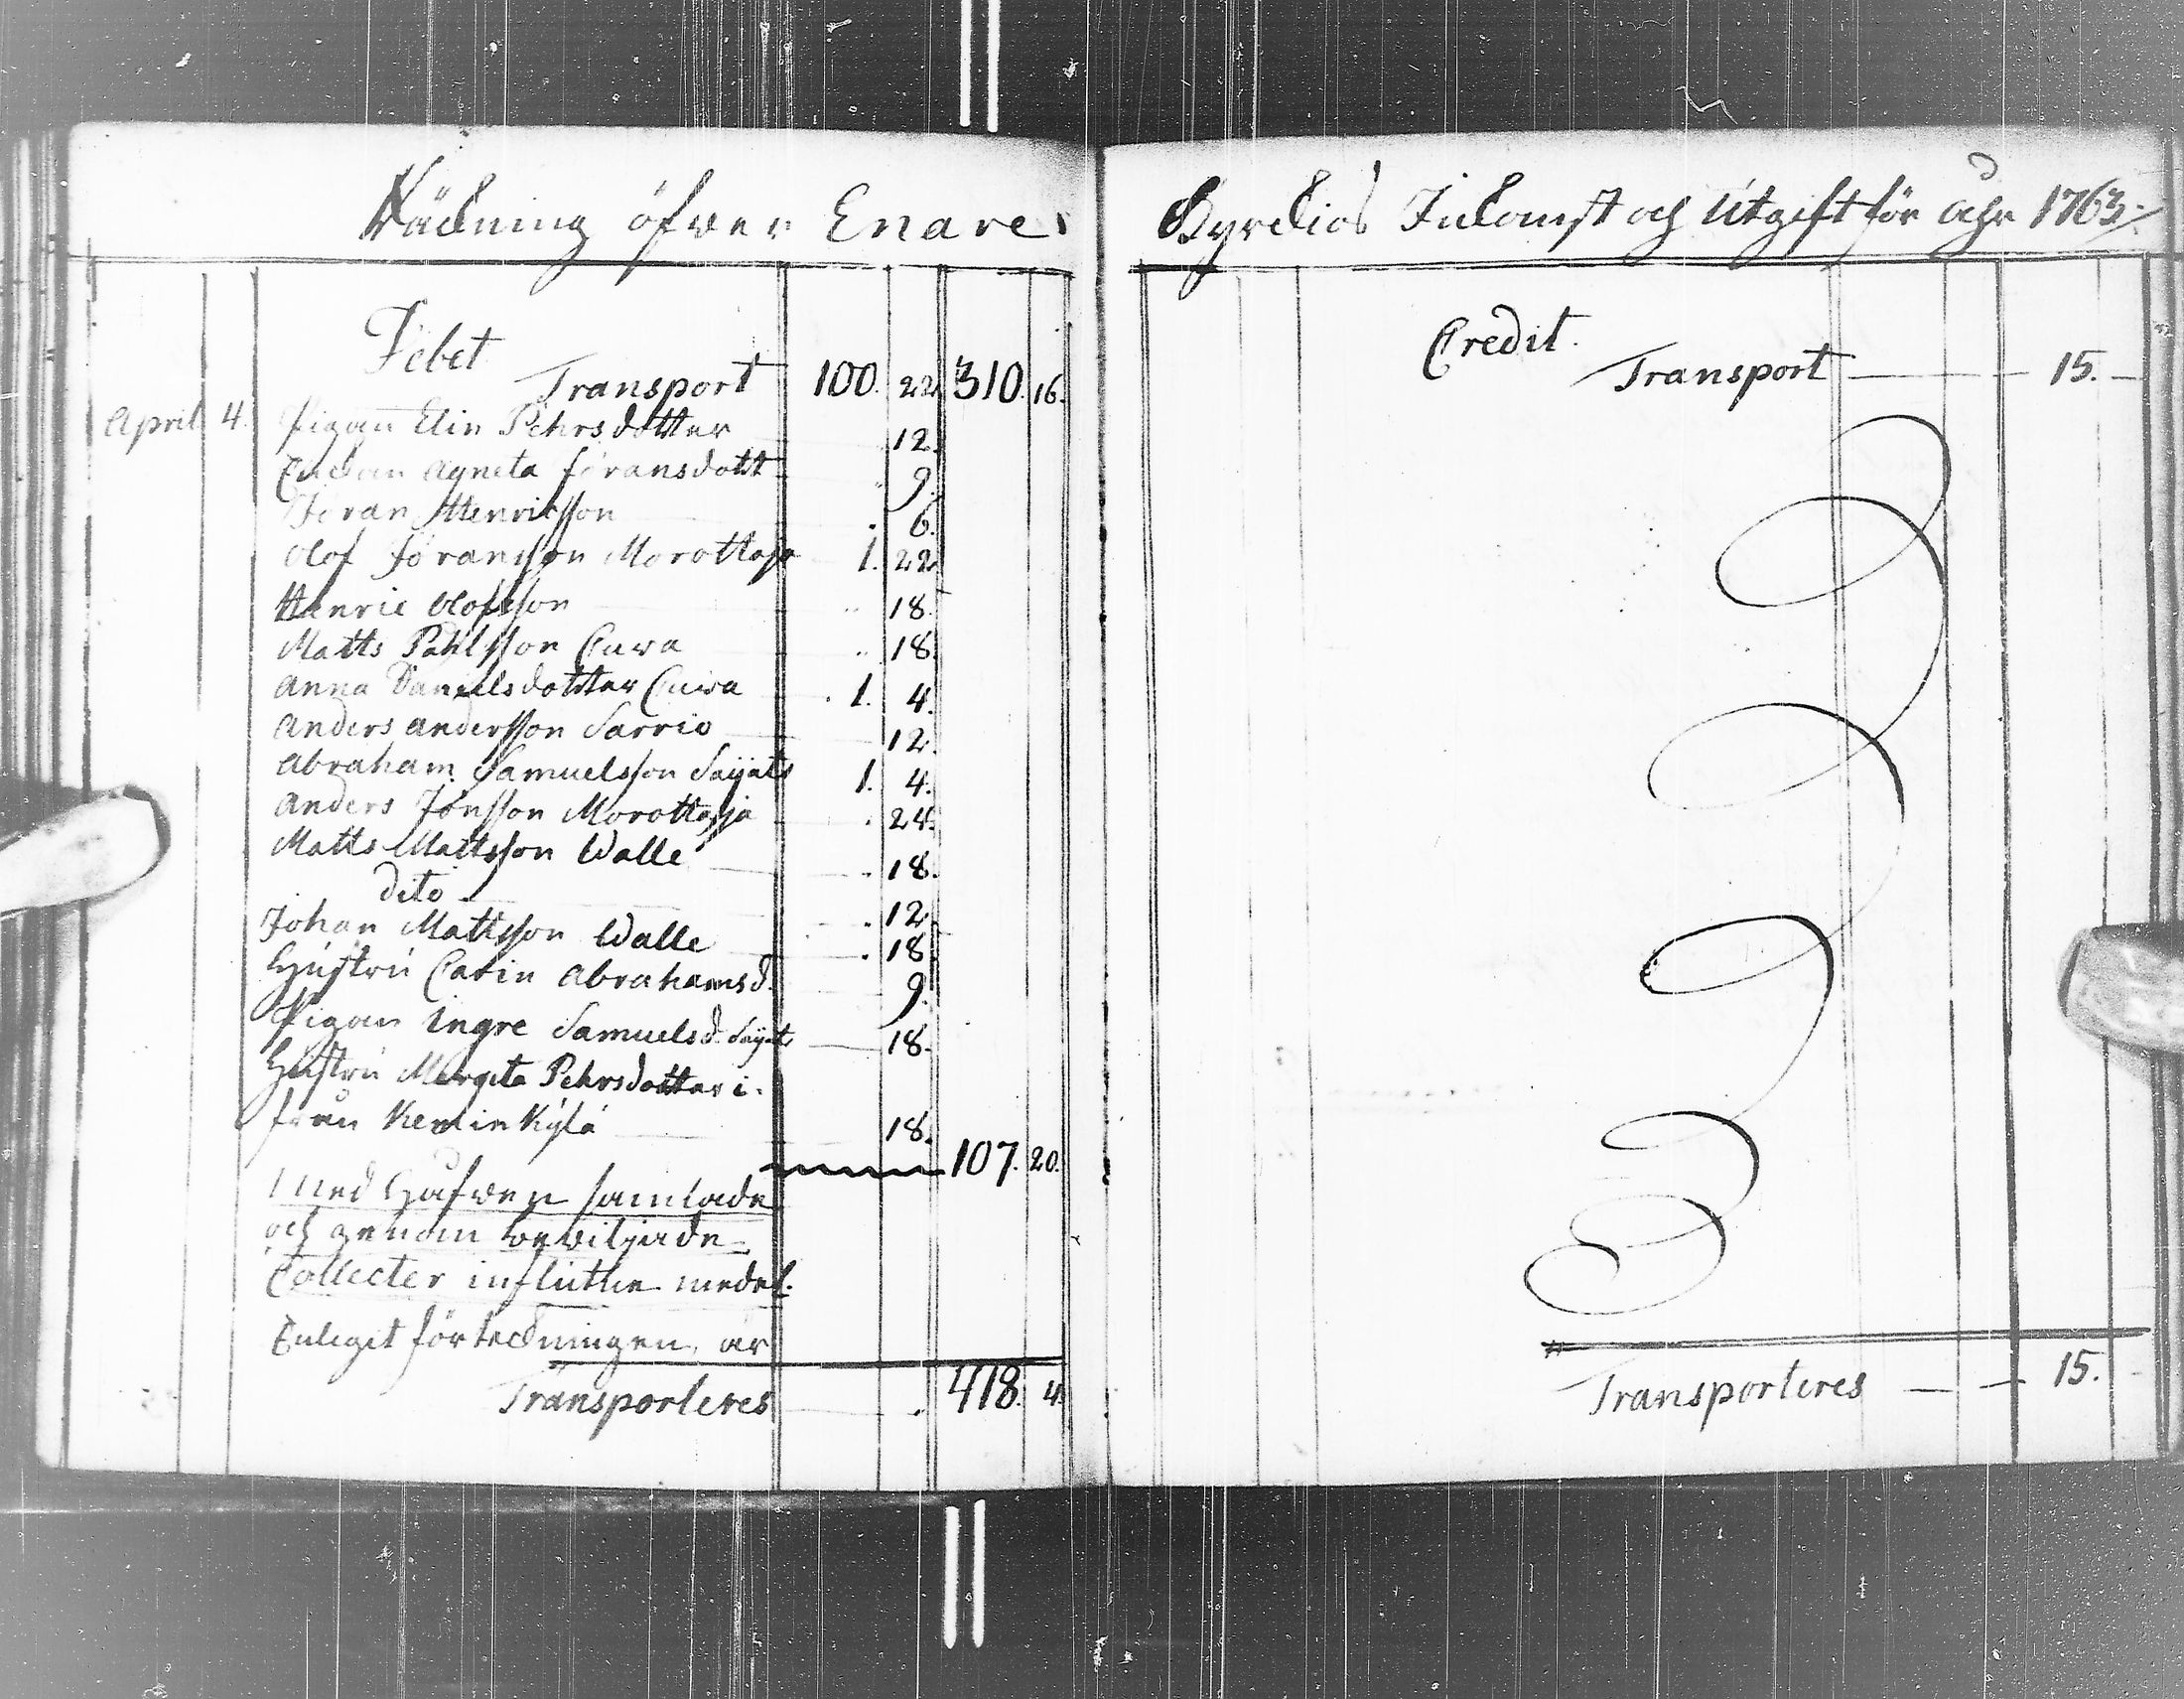 Räkning öfwer Enare
Debet
Transport 100. 22. 310. 16.
April 4. Pigan Elin Pehrsdotter 12.
Enkan Agneta Jöransdott 9.
Jöran Henricsson 6.
Olof Jöransson Morottaja 1. 22.
Henric Olofsson 18.
Matts Påhlsson Cuwa 18.
Anna Danielsdotter Cuwa 1. 4.
Anders Andersson Sarrio 12.
Abraham Samuelsson Saijats 1. 4.
Anders Jönsson Morottaja 24.
Matts Mattsson Walle 18.
dito 12.
Johan Mattsson Walle 18.
Hustru Carin Abrahamsd. 9.
Pigan Ingre Samuelsd. Saijets 18.
Hustru Margeta Pehrsdotter i.
från Kemin Kÿlä 18.
107. 20.
Med Håfwen samlade
och genom bewiljade
Collecter influtne medel.
Enligit förteckningen, är
Transporteres 418. 4.
Kyrkios Inkomst och Utgift för åhr 1763.
Credit.
Transport 15.
Transporteres 15.